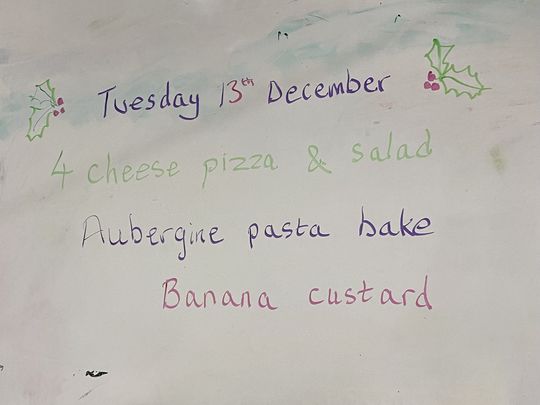 Tuesday 13th December
4 cheese pizza & salad
Aubergine pasta bake
Banana custard